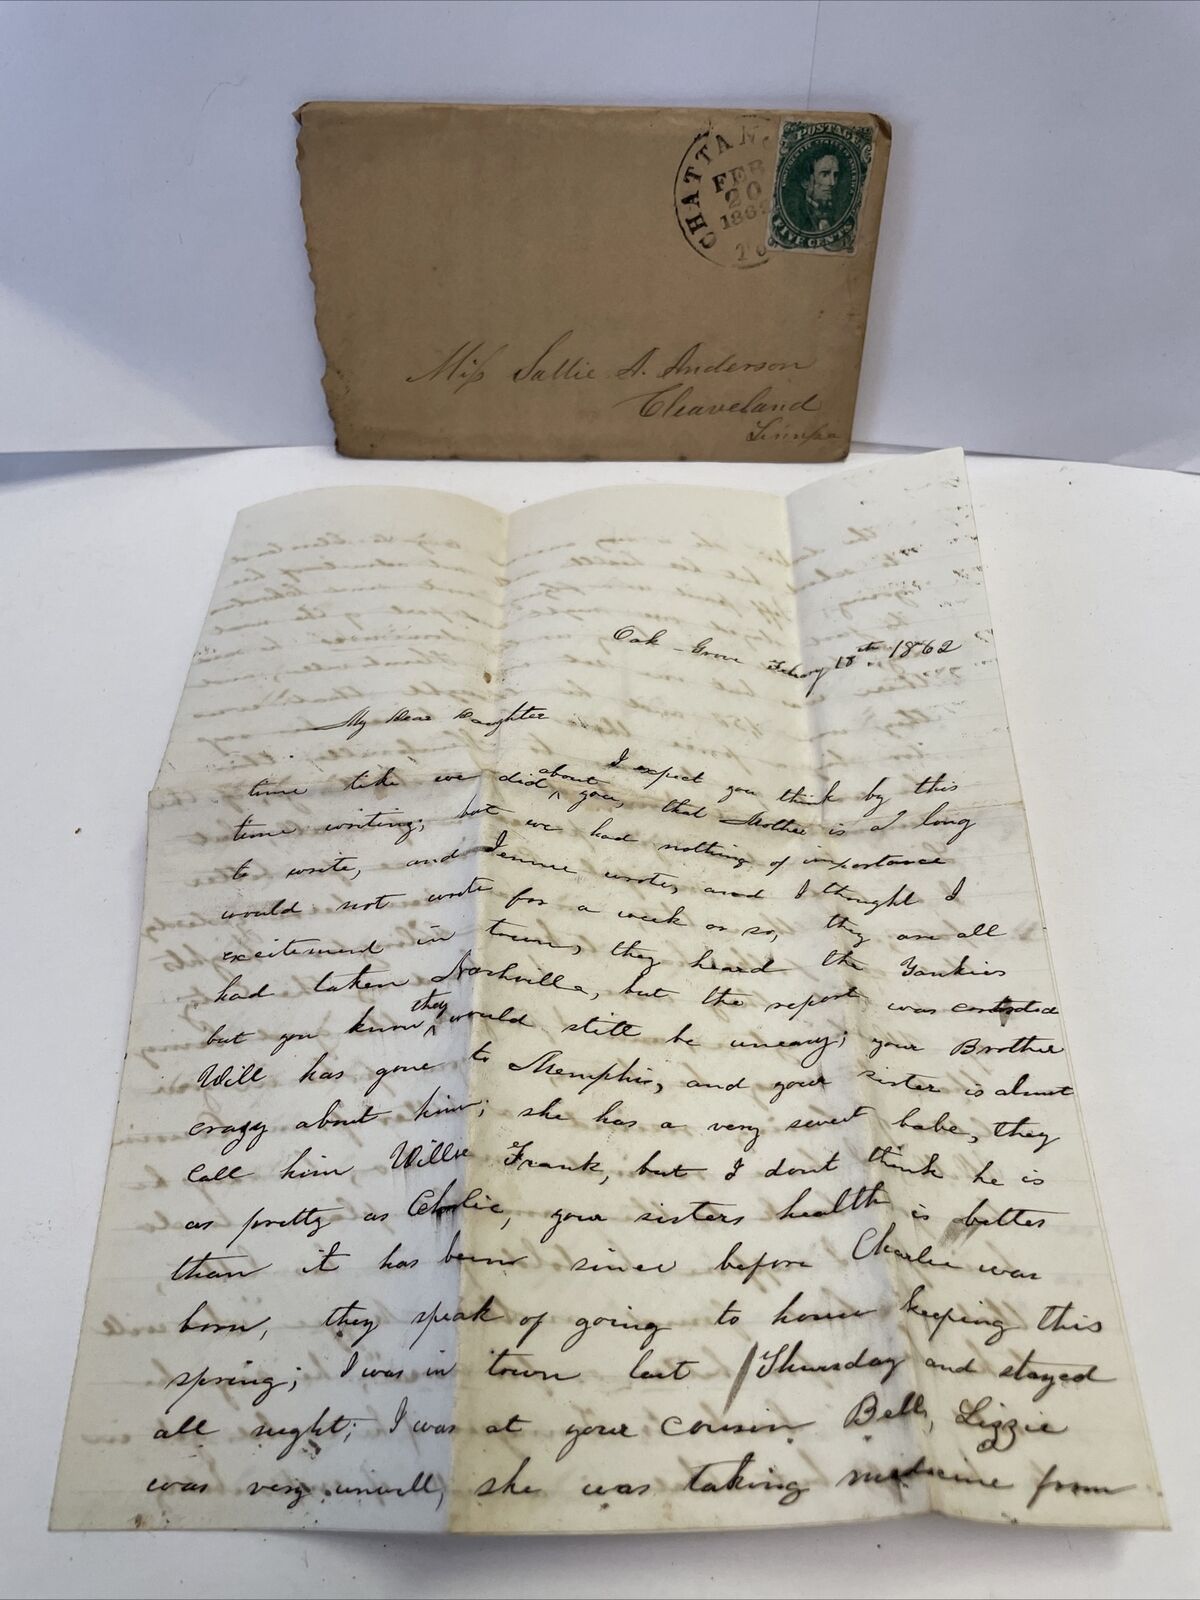 CHATTANO
FEB
20
1862
POSTAGE
FIVE CENTS
Miss Sallie A. Anderson
Cleaveland
Oak Grove 18th 1862
My Dear Daughter
I expect you think by this
time like we did about you, that Mother is a long
time writing; but we had nothing of importance
to write, and Jennie wrote, and I thought I
would not write for a week or so, they are all
excitement in town, they heard the Yankies
had taken Nashville, but the report was
but you know they would still be uneasy; your Brother
Will has gone to Memphis, and your sister is almost
crazy about him; she has a very sweet babe, they
call him, Willie Frank, but I dont think he is
as pretty as Charlie, your sisters health is better
than it has been since before Charlie was
born, they speak of going to house keeping this
spring; I was in town last Thursday and stayed
all night; I was at your cousin Bells, Lizzie
was very unwell, she was taking medicine from